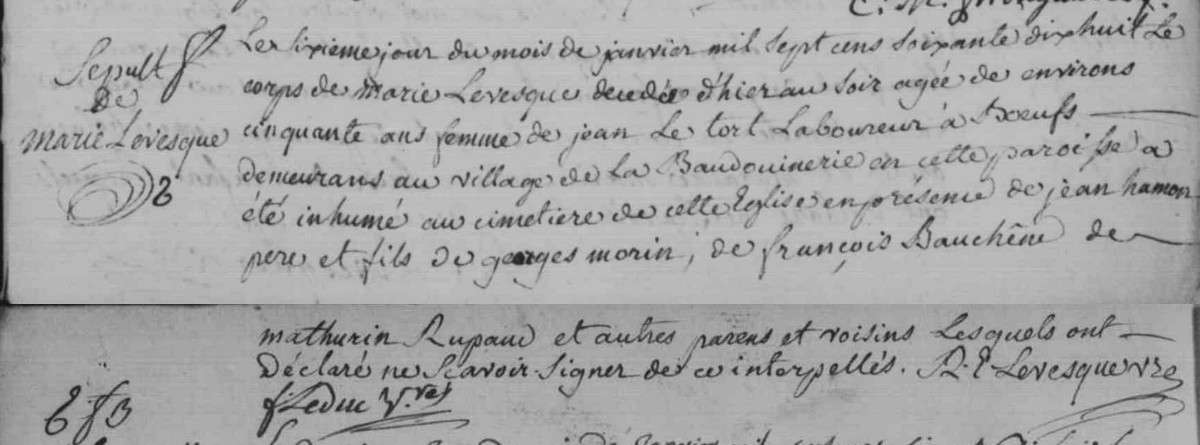 Sepult
de
marie Levesque
Le sixieme jour du mois de janvier mil sept cens soixante dixhuit Le
corps de marie Levesque decedée d'hier au soir agée de environs
cinquante ans femme de jean Le tort Laboureur à Bœufs
demeurans au village de la Baudouinerie en cette paroisse a
été inhumé au cimetiere de cette Eglise en présence de jean hamon
pere et fils de georges morin, de françois Bauchêne de
mathurin Rupaud et autres parens et voisins Lesquels ont
Déclaré ne Scavoir Signer de ce interpellés. R. E. Levesque vre
f Leduc V.res